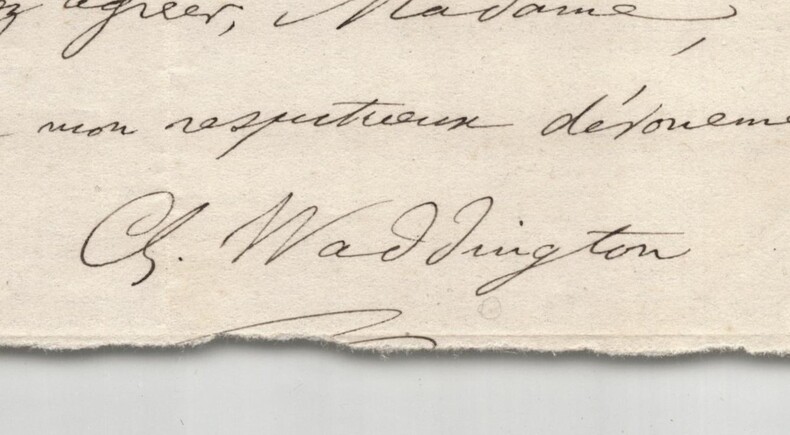 agréer, Madame,
mon respectueux dévoueme
Ch. Waddington